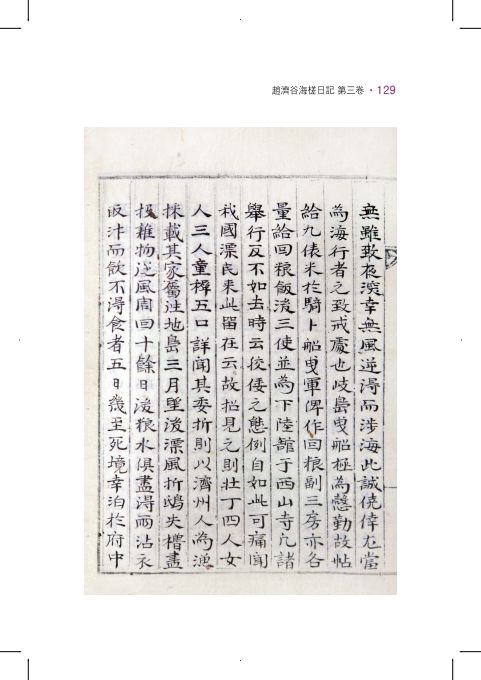 趙濟谷海槎日記 第三卷 · 129
無雖致夜深幸無風逆得而涉海此誠僥倖尤當
為海行者之致戒處也岐島曳船極為慇勤故帖
給九俵米於騎卜船曳軍俾作回粮副三房亦各
量給回粮飯後三使並為下陸舘于西山寺凡諸
擧行反不如去時云狡倭之態例自如此可痛聞
我國漂民來此留在云故招見之則壯丁四人女
人三人童穉五口詳聞其委折則以濟州人為漁
採載其家屬往地島三月望後漂風折鴟失櫓盡
投雜物逆風周回十餘日後粮水俱盡得雨沾衣
取汁而飲不得食者五日幾至死境幸泊於府中